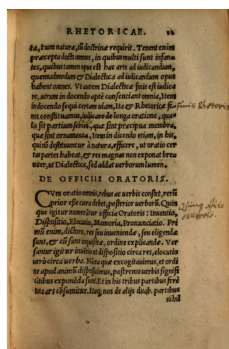 RHETORICAE. 12
ta, tum natura, tũ doctrina requirit. Tenent enim
præcepta docti omnes, in quibus multi sunt infan
tes, quibus tamen opus est hac arte ad iudicandum,
quemadmodum & Dialectica ad iudicandum opus
habent omnes. Vt autem Dialecticæ finis est iudica
re, utrum in docendo apte consentiant omnia, Item
in docendo sequi certam uiam, Ita & Rhetoricæ fi
nis constituamus, iudicare de longa oratione, qua
lis sit partium series, quæ sint præcipua membra,
quæ sint ornamenta. Item in dicendo etiam,
certas partes habeat, & res magnas non exponat breui
ter, ut Dialectica, sed addat uerborum lumen.
DE OFFICIIS ORATORIS.
CVm oratio omnis, rebus ac uerbis constet, rerũ
prior esse cura debet, posterior uerborũ. Quin
que igitur numerantur officia Oratoris: Inuentio,
Dispositio, Elocutio, Memoria, Pronunciatio. Pri
mũ enim, dicturo, res sunt inueniendæ, seu eligendæ
sunt, & cũ sunt inquisitæ, ordine explicandæ. Ver
santur igitur inuentio et dispositio circa res, elocutio
uerò circa uerba. Nam quæ excogitauimus, et ordi
ne apud animũ disposuimus, postremo uerbis signifi
cantibus exponenda sunt. Et in his tribus partibus ferè
tota ars consumitur. Itaq; nos de alijs duab. partibus
nihil
finis Rhetoricæ